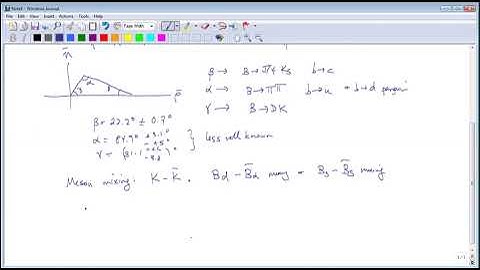 Note1 - Windows Journal
File Edit View Insert Actions Tools Help
Page Width
η̄
α
γ β
ρ̄
β → B → J/ψ Ks b→c
α → B → ππ b→u + b→d penguin
γ → B → DK
β = 22.2° ± 0.9°
less well known
Meson mixing. K - K̄, Bd - B̄d mixing + Bs - B̄s mixing
1 / 1